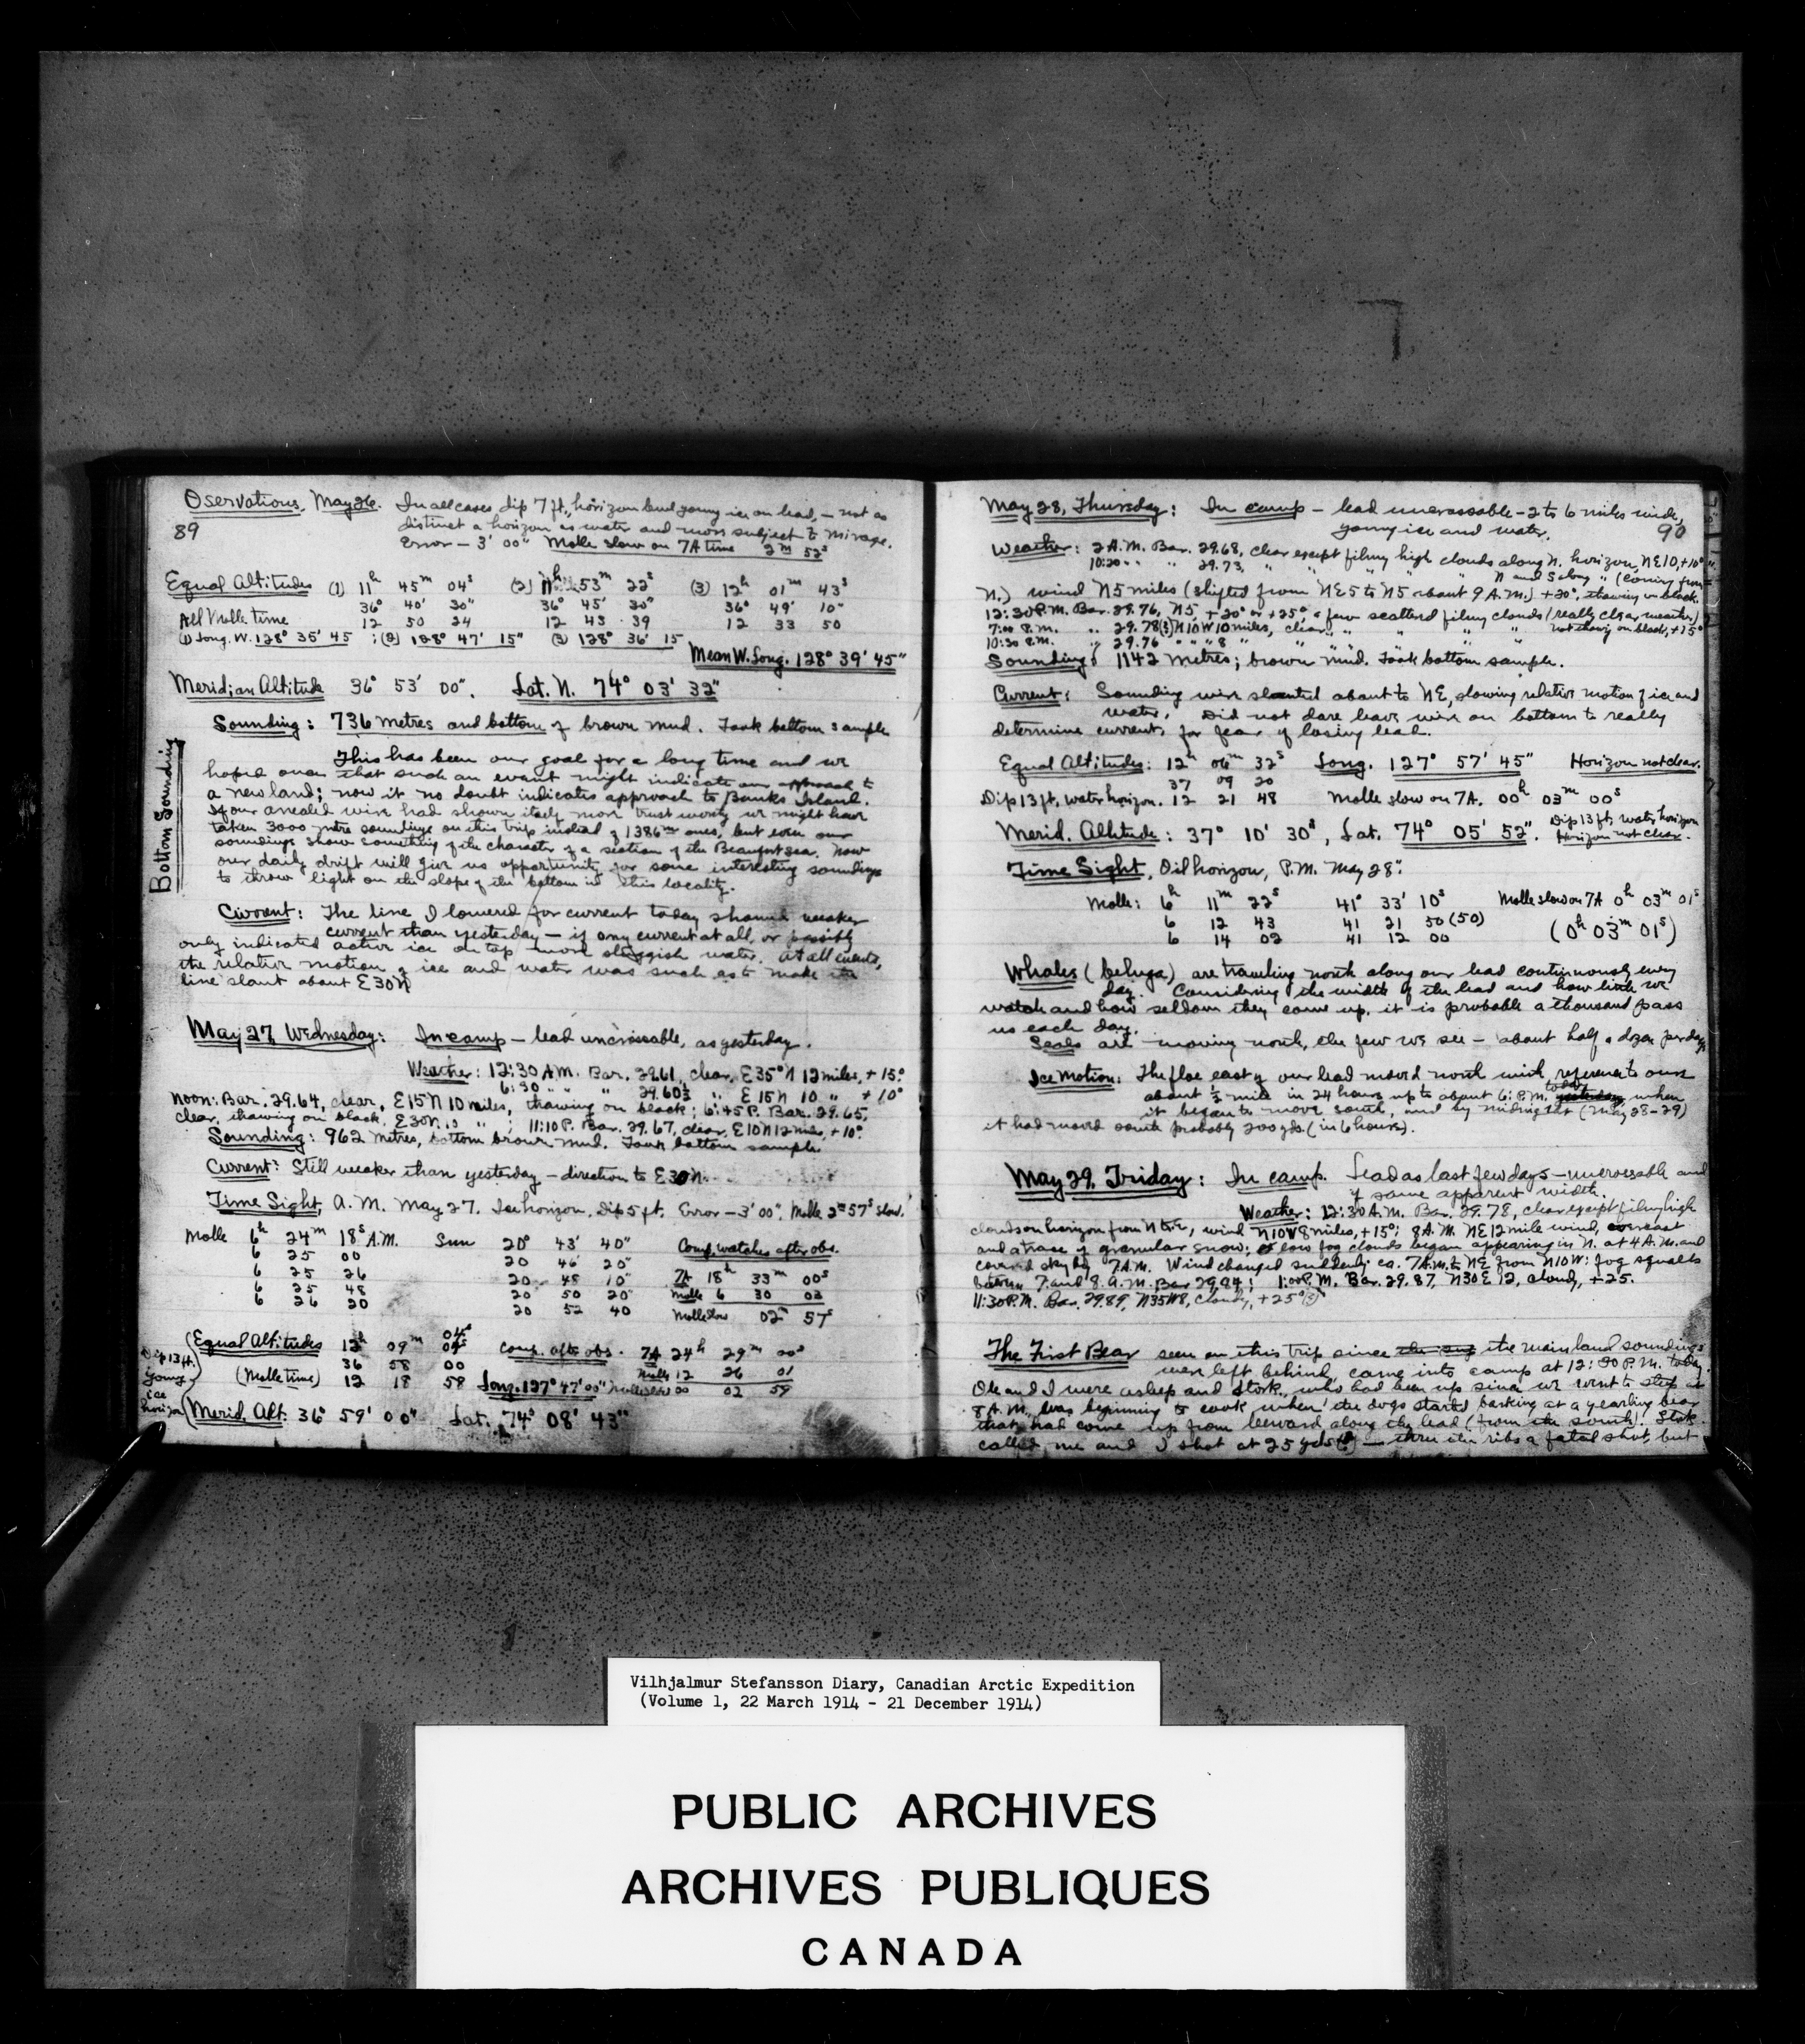 Oservations, May 26. In all cases dip 7 ft., horizon level young ice on lead, — not as
89
distinct a horizon as water and more subject to mirage.
Error — 3' 00" Molle slow on 7A time 2m 52s
Equal Altitudes (1) 11h 45m 04s (2) 11h 53m 22s (3) 12h 01m 43s
36° 40' 30" 36° 45' 30" 36° 49' 10"
All Molle time 12 50 24 12 43 39 12 33 50
(1) Long. W. 128° 35' 45 ; (2) 128° 47' 15" (3) 128° 36' 15
Mean W. Long. 128° 39' 45"
Meridian Altitude 36° 53' 00". Lat. N. 74° 03' 32"
Sounding: 736 metres and bottom of brown mud. Took bottom sample
Bottom Sounding
This has been our goal for a long time and we
hoped once that such an event might indicate our approach to
a new land; now it no doubt indicates approach to Banks Island.
If our wire had shown itself more trustworthy we might have
taken 3000 metre soundings on this trip instead of 1386m ones, but even our
soundings show something of the character of a section of the Beaufort Sea. Now
our daily drift will give us opportunity for some interesting soundings
to throw light on the slope of the bottom in this locality.
Current: The line I lowered for current today showed weaker
current than yesterday — if any current at all, or possibly
only indicated active ice on top more sluggish water. At all events,
the relative motion of ice and water was such as to make the
line slant about E30N
May 27, Wednesday: In camp — lead uncrossable, as yesterday.
Weather: 12:30 A.M. Bar. 29.61, clear, E35°N 12 miles, + 15°.
6:30 " " " 29.60½ " E15N 10 " + 10°
Noon: Bar. 29.64, clear, E15N 10 miles, thawing on black; 6:45 P. Bar. 29.65,
clear, thawing on black, E30N 10 " ; 11:10 P. Bar. 29.67, clear, E10N 12 miles, + 10°.
Sounding: 962 metres, bottom brown mud. Took bottom sample
Current: Still weaker than yesterday — direction to E30N.
Time Sight, A. M. May 27. Ice horizon, Dip 5 ft. Error — 3' 00". Molle 2m 57s slow.
Molle 6h 24m 18s A.M. Sun 20° 43' 40" Comp. watches after obs.
6 25 00 20 46 20"
6 25 26 20 48 10" 7A 18h 33m 00s
6 25 48 20 50 20" Molle 6 30 03
6 26 20 20 52 40 Molle slow 02m 57s
Dip 13 ft. young ice horizon
04s
Equal Altitudes 12h 09m 04s Comp. after obs. 7A 24h 29m 00s
36 58 00 Molle 12 26 01
(Molle time) 12 18 58 Long. 127° 47' 00" Molle slow 00 02 59
Merid. Alt. 36° 59' 00" Lat. 74° 08' 43"
May 28, Thursday: In camp — lead uncrossable — 2 to 6 miles wide,
young ice and water. 90
Weather: 2 A.M. Bar. 29.68, clear except filmy high clouds along N. horizon, NE10, +10°
10:20 " " " 29.73, " " " " " N and S along " (coming from
N.) wind N5 miles (shifted from NE5 to N5 about 9 A.M.) +20°, thawing on black.
12:30 P.M. Bar. 29.76, N5, +20° or +25°, a few scatterd filmy clouds (really clear weather)
7:00 P.M. " 29.78(?) N10W 10 miles, clear " " " " " not thawing on black, +15°
10:30 P.M. " 29.76 " " 8 " " " "
Sounding: 1142 metres; brown mud. Took bottom sample.
Current: Sounding wire slanted about to NE, showing relative motion of ice and
water. Did not dare leave wire on bottom to really
determine current, for fear of losing lead.
Equal Altitudes: 12h 06m 32s Long. 127° 57' 45" Horizon not clear.
37 09 20
Dip 13 ft, water horizon. 12 21 48 Molle slow on 7A. 00h 03m 00s
Merid. Altitude: 37° 10' 30", Lat. 74° 05' 52". Dip 13 ft, water horizon
Horizon not clear.
Time Sight, Oil horizon, P.M. May 28:
Molle: 6h 11m 22s 41° 33' 10s Molle slow on 7A 0h 03m 01s
6 12 43 41 21 50 (50)
6 14 02 41 12 00 (0h 03m 01s)
Whales (beluga) are traveling north along our lead continuously every
day. Considering the width of the lead and how little we
watch and how seldom they come up, it is probable a thousand pass
us each day.
Seals are moving north, the few we see — about half a dozen per day.
Ice Motion: The floe east of our lead moved north with reference to ours
about ½ mile in 24 hours up to about 6: P.M. today yesterday, when
it began to move south, and by midnight (May 28-29)
it had moved south probably 200 yds. (in 6 hours).
May 29, Friday: In camp. Lead as last few days — uncrossable and
of same apparent width.
Weather: 12:30 A.M. Bar. 29.78, clear except filmy high
clouds on horizon from N to E, wind N10W 8 miles, +15°; 8 A.M. NE 12 mile wind, overcast
and a trace of granular snow; low fog clouds began appearing in N. at 4 A.M. and
covered sky by 7 A.M. Wind changed suddenly ca. 7 A.M. to NE from N10W: fog squalls
between 7 and 8. A.M. Bar 29.84; 1:00 P.M. Bar. 29.87, N30E 12, cloudy, +25.
11:30 P.M. Bar. 29.89, N35W8, cloudy, +25°(?)
The First Bear seen on this trip since the mainland soundings
were left behind, came into camp at 12:30 P.M. today.
Ole and I were asleep and Stork., who had been up since we went to sleep at
8 A.M. was beginning to cook, when the dogs started barking at a yearling bear
that had come up from leeward along the lead (from the south). Stork
called me and I shot at 25 yds (?) — thru the ribs a fatal shot, but
Vilhjalmur Stefansson Diary, Canadian Arctic Expedition
(Volume 1, 22 March 1914 - 21 December 1914)
PUBLIC ARCHIVES
ARCHIVES PUBLIQUES
CANADA